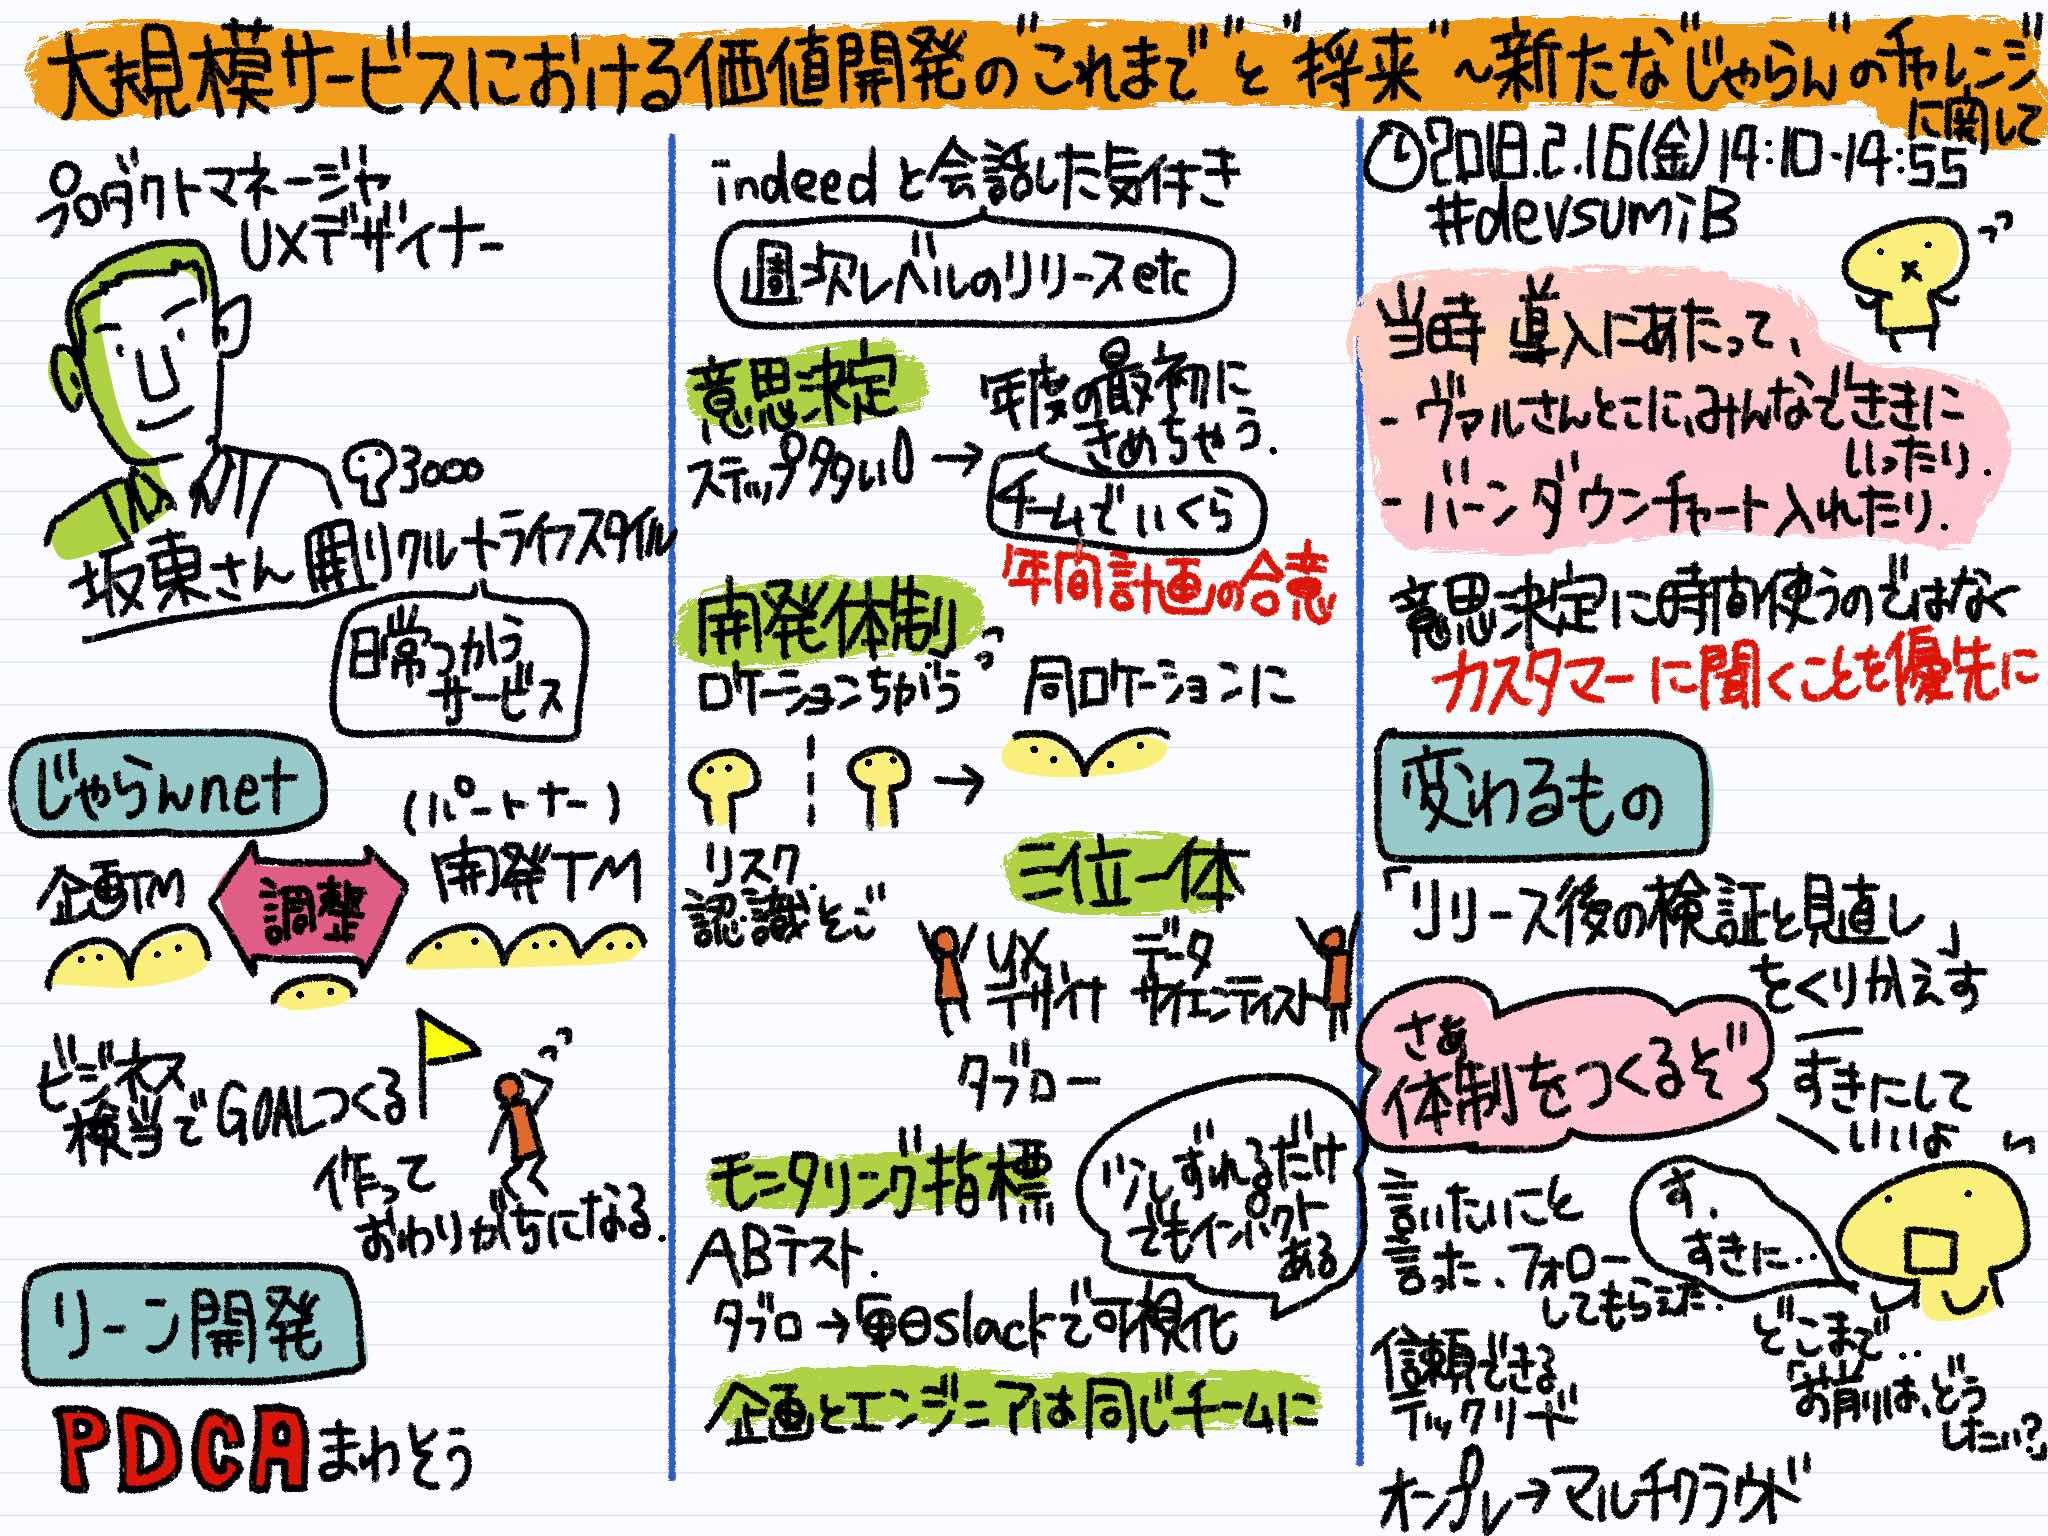 大規模サービスにおける価値開発の"これまで"と"将来"～新たなじゃらんのチャレンジ
に関して
プロダクトマネージャ
UXデザイナー
3000
坂東さん (株)リクルートライフスタイル
日常つかう
サービス
じゃらんnet
(パートナー)
企画TM
調整
開発TM
ビジネス
検当でGOALつくる
作って
おわりがちになる.
リーン開発
PDCAまわそう
indeedと会話した気付き
週次レベルのリリースetc
意思決定
ステップタタい
→
年度の最初に
きめちゃう.
チームでいくら
年間計画の合意
開発体制
ロケーションちがう
同ロケーションに
→
リスク
認識そご
三位一体
UX
デザイナ
データ
サイエンティスト
タブロー
モニタリング指標
ABテスト.
少しずれるだけ
でもインパクト
ある
タブロ→毎日slackで可視化
企画とエンジニアは同じチームに
2018.2.16(金)14:10-14:55
#devsumiB
当時 導入にあたって、
- ヴァルさんとこに、みんなでききに
いったり.
- バーンダウンチャート入れたり.
意思決定に時間使うのではなく
カスタマーに聞くことを優先に
変わるもの
「リリース後の検証と見直し」
をくりかえす
さぁ
体制をつくるぞ
すきにして
いいよ
言いたいこと
言った、フォロー
してもらえた.
す、
すきに…
どこまで…
「お前は、どう
したい?」
信頼できる
テックリード
オンプレ→マルチクラウド